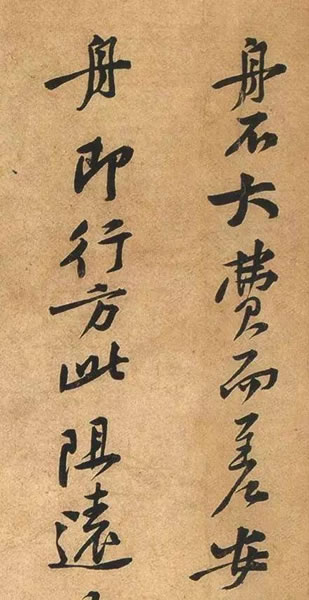 舟不大費而差安
舟即行方此阻遠